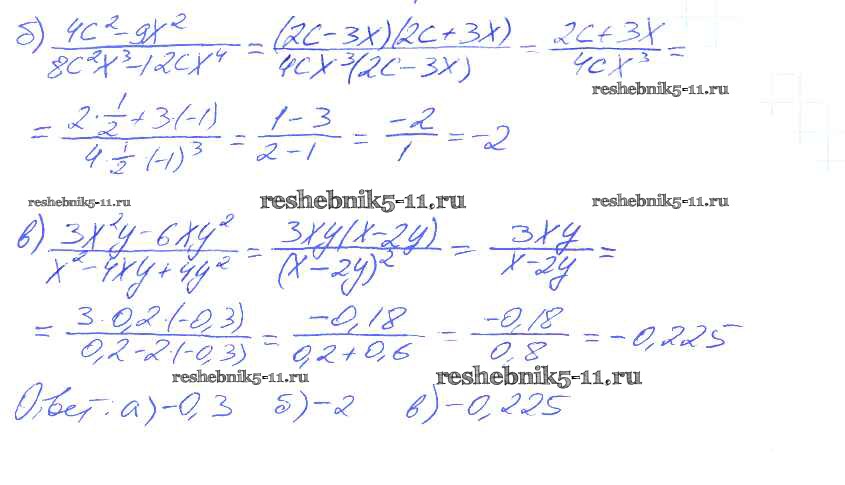 б) (4c² - 9x²)/(8c²x³ - 12cx⁴) = ((2c - 3x)(2c + 3x))/(4cx³(2c - 3x)) = (2c + 3x)/(4cx³) =
reshebnik5-11.ru
= (2·1/2 + 3·(-1))/(4·1/2·(-1)³) = (1 - 3)/(2 - 1) = (-2)/1 = -2
reshebnik5-11.ru reshebnik5-11.ru reshebnik5-11.ru
в) (3x²y - 6xy²)/(x² - 4xy + 4y²) = (3xy(x - 2y))/((x - 2y)²) = (3xy)/(x - 2y) =
= (3·0,2·(-0,3))/(0,2 - 2·(-0,3)) = (-0,18)/(0,2 + 0,6) = (-0,18)/(0,8) = -0,225
reshebnik5-11.ru reshebnik5-11.ru
Ответ: а) -0,3 б) -2 в) -0,225